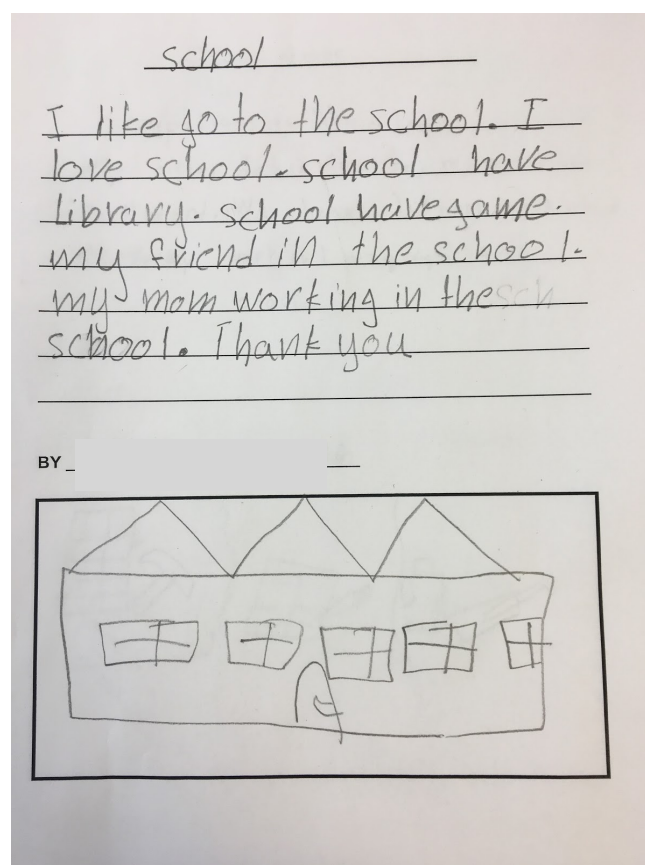 school
I like go to the school. I
love school. school have
Library. school have game.
my friend in the school.
my mom working in the sch
school. Thank you
BY